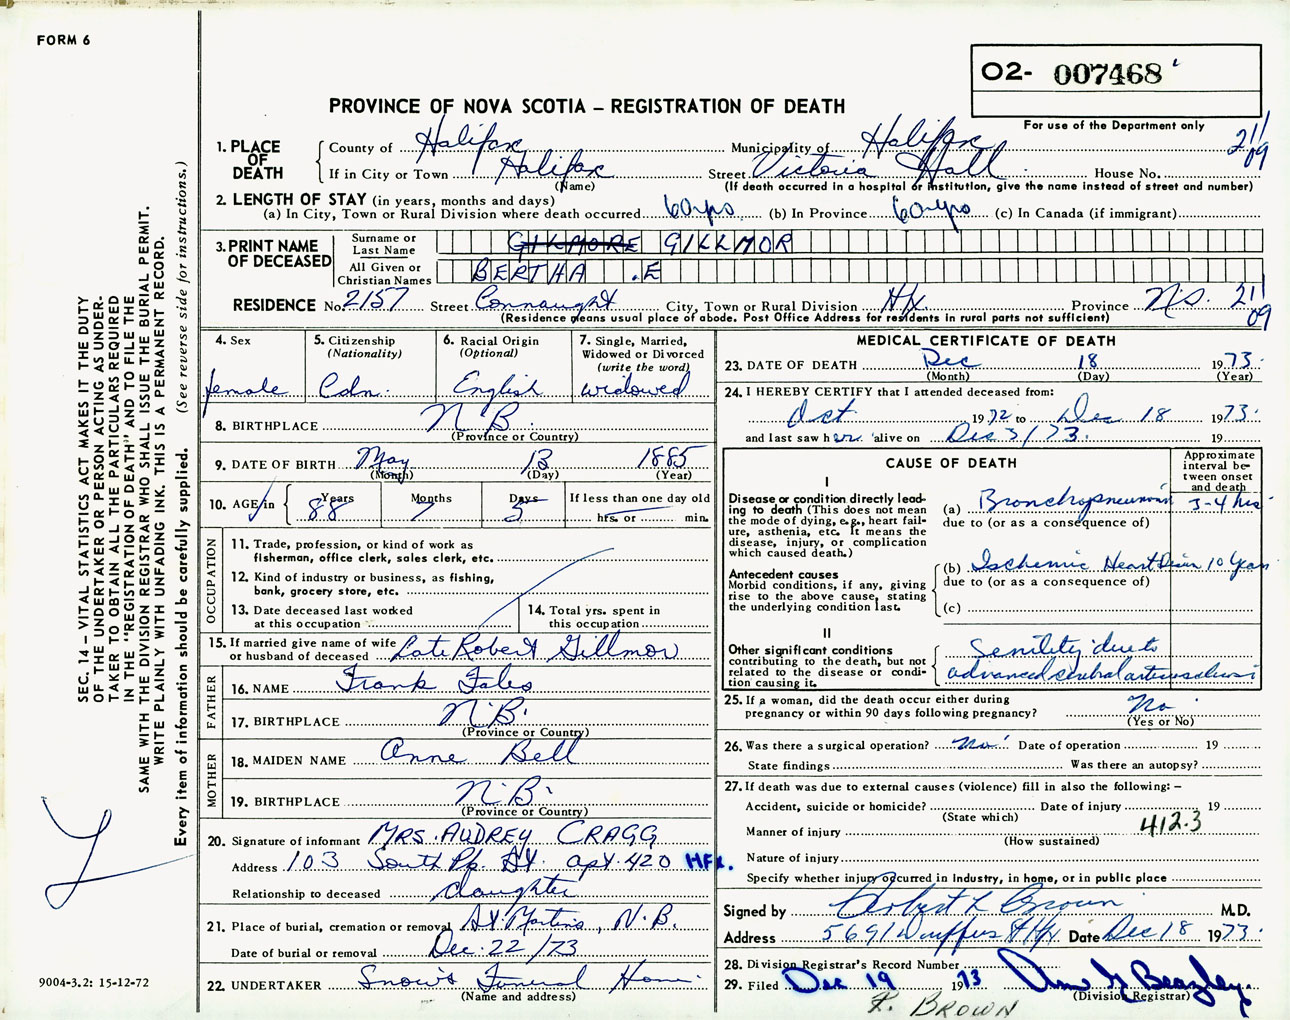 FORM 6
O2- 007468
PROVINCE OF NOVA SCOTIA – REGISTRATION OF DEATH
For use of the Department only
211
09
1. PLACE OF DEATH
County of Halifax Municipality of Halifax
If in City or Town Halifax Street Victoria Hall House No.
(Name) (If death occurred in a hospital or institution, give the name instead of street and number)
2. LENGTH OF STAY (in years, months and days)
(a) In City, Town or Rural Division where death occurred 60 yrs (b) In Province 60 yrs (c) In Canada (if immigrant)
3. PRINT NAME OF DECEASED
Surname or Last Name GILMORE GILLMOR
All Given or Christian Names BERTHA .E
RESIDENCE No. 2157 Street Connaught City, Town or Rural Division Hfx Province N.S. 211
09
(Residence means usual place of abode. Post Office Address for residents in rural parts not sufficient)
4. Sex
female
5. Citizenship
(Nationality)
Cdn.
6. Racial Origin
(Optional)
English
7. Single, Married, Widowed or Divorced
(write the word)
widowed
8. BIRTHPLACE N.B.
(Province or Country)
9. DATE OF BIRTH May 13 1885
(Month) (Day) (Year)
10. AGE in Years Months Days If less than one day old
88 7 5 hrs. or min.
OCCUPATION
11. Trade, profession, or kind of work as fisherman, office clerk, sales clerk, etc.
12. Kind of industry or business, as fishing, bank, grocery store, etc.
13. Date deceased last worked at this occupation
14. Total yrs. spent in this occupation
15. If married give name of wife or husband of deceased Late Robert Gillmor
FATHER
16. NAME Frank Fales
17. BIRTHPLACE N.B.
(Province or Country)
MOTHER
18. MAIDEN NAME Anne Bell
19. BIRTHPLACE N.B.
(Province or Country)
20. Signature of informant MRS. AUDREY CRAGG
Address 103 South Pk. St. apt. 420 HFX.
Relationship to deceased daughter
21. Place of burial, cremation or removal St. Martins, N.B.
Date of burial or removal Dec. 22/73
22. UNDERTAKER Snow's Funeral Home
(Name and address)
MEDICAL CERTIFICATE OF DEATH
23. DATE OF DEATH Dec 18 1973.
(Month) (Day) (Year)
24. I HEREBY CERTIFY that I attended deceased from:
Oct 1972 to Dec 18 1973.
and last saw her alive on Dec 3/73. 19
CAUSE OF DEATH
Approximate interval between onset and death
I
Disease or condition directly leading to death (This does not mean the mode of dying, e.g., heart failure, asthenia, etc. It means the disease, injury, or complication which caused death.)
(a) Bronchopneumonia 3-4 hrs
due to (or as a consequence of)
Antecedent causes
Morbid conditions, if any, giving rise to the above cause, stating the underlying condition last.
(b) Ischemic Heart Disease 10 Years
due to (or as a consequence of)
(c)
II
Other significant conditions contributing to the death, but not related to the disease or condition causing it.
Senility due to
advanced cerebral arteriosclerosis
25. If a woman, did the death occur either during pregnancy or within 90 days following pregnancy? No
(Yes or No)
26. Was there a surgical operation? No Date of operation 19
State findings Was there an autopsy?
27. If death was due to external causes (violence) fill in also the following: –
Accident, suicide or homicide? Date of injury 19
(State which)
412.3
Manner of injury
(How sustained)
Nature of injury
Specify whether injury occurred in industry, in home, or in public place
Signed by M.D.
Address 5691 Duffus St Hfx Date Dec 18 1973.
28. Division Registrar's Record Number
29. Filed Dec 19 1973
(Division Registrar)
BROWN
SEC. 14 – VITAL STATISTICS ACT MAKES IT THE DUTY
OF THE UNDERTAKER OR PERSON ACTING AS UNDER-
TAKER TO OBTAIN ALL THE PARTICULARS REQUIRED
IN THE "REGISTRATION OF DEATH" AND TO FILE THE
SAME WITH THE DIVISION REGISTRAR WHO SHALL ISSUE THE BURIAL PERMIT.
WRITE PLAINLY WITH UNFADING INK. THIS IS A PERMANENT RECORD.
Every item of information should be carefully supplied. (See reverse side for instructions.)
9004-3.2: 15-12-72